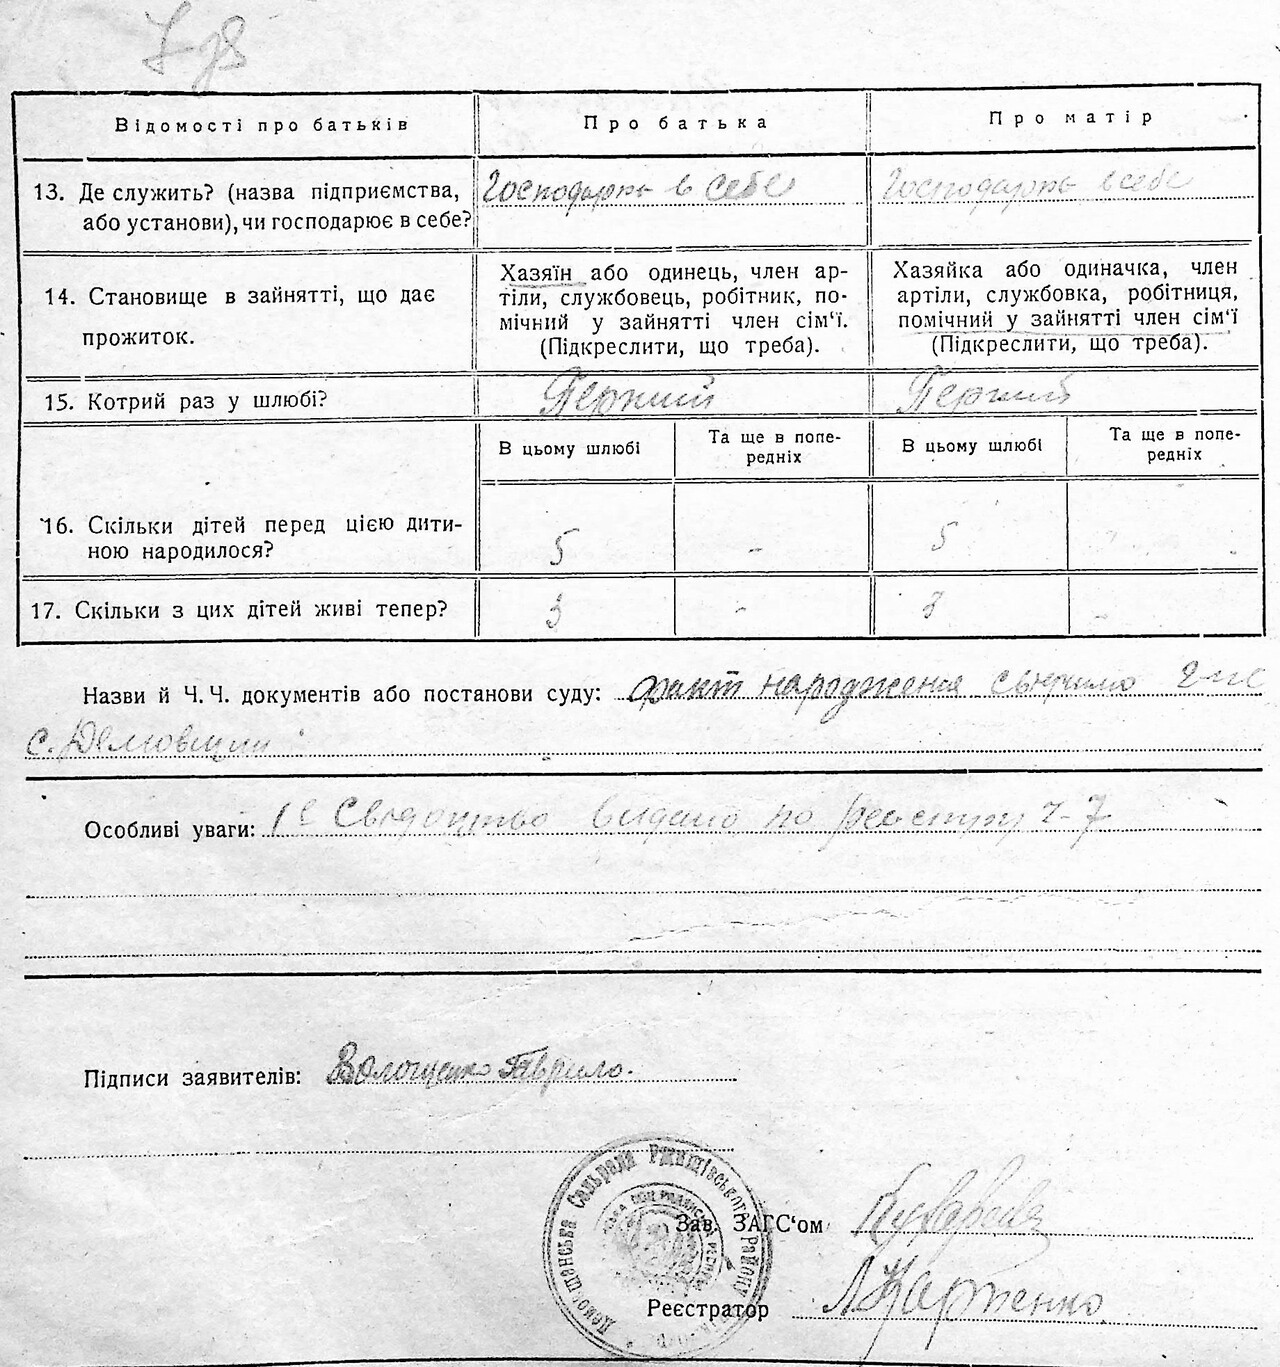 Відомості про батьків
Про батька
Про матір
13. Де служить? (назва підприємства,
або установи), чи господарює в себе?
Господарює в себе
Господарює в себе
14. Становище в зайнятті, що дає
прожиток.
Хазяїн або одинець, член ар-
тіли, службовець, робітник, по-
мічний у зайнятті член сім‘ї.
(Підкреслити, що треба).
Хазяйка або одиначка, член
артіли, службовка, робітниця,
помічний у зайнятті член сім‘ї
(Підкреслити, що треба).
15. Котрий раз у шлюбі?
Перший
Перший
В цьому шлюбі
Та ще в попе-
редніх
В цьому шлюбі
Та ще в попе-
редніх
16. Скільки дітей перед цією дити-
ною народилося?
5
-
5
-
17. Скільки з цих дітей живі тепер?
3
-
3
-
Назви й Ч. Ч. документів або постанови суду: факт народження
с. Демовщин
Особливі уваги: Свідоцтво видано по реєстру ч-7
Підписи заявителів: Волощенко Гаврило.
Сельрада Ржищівського району
Зав. ЗАГС‘ом
Реєстратор Л Карпенко